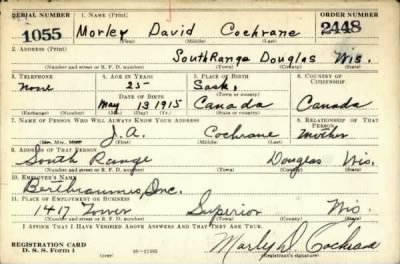 SERIAL NUMBER 1. NAME (Print) ORDER NUMBER
1055 Morley David Cochrane 2448
(First) (Middle) (Last)
2. ADDRESS (Print)
South Range Douglas Wis.
(Number and street or R. F. D. number) (Town) (County) (State)
3. TELEPHONE 4. AGE IN YEARS 5. PLACE OF BIRTH 6. COUNTRY OF CITIZENSHIP
None 25 Sask.
DATE OF BIRTH (Town or county)
May 13 1915 Canada Canada
(Exchange) (Number) (Mo.) (Day) (Yr.) (State or country)
7. NAME OF PERSON WHO WILL ALWAYS KNOW YOUR ADDRESS 8. RELATIONSHIP OF THAT PERSON
J. A. Cochrane Mother
(First) (Middle) (Last)
9. ADDRESS OF THAT PERSON
South Range Douglas Wis.
(Number and street or R. F. D. number) (Town) (County) (State)
10. EMPLOYER'S NAME
Inc.
11. PLACE OF EMPLOYMENT OR BUSINESS
1417 Tower Superior Wis.
(Number and street or R. F. D. number) (Town) (County) (State)
I AFFIRM THAT I HAVE VERIFIED ABOVE ANSWERS AND THAT THEY ARE TRUE.
REGISTRATION CARD
D. S. S. Form 1 (over) Morley D. Cochrane
(Registrant's signature)